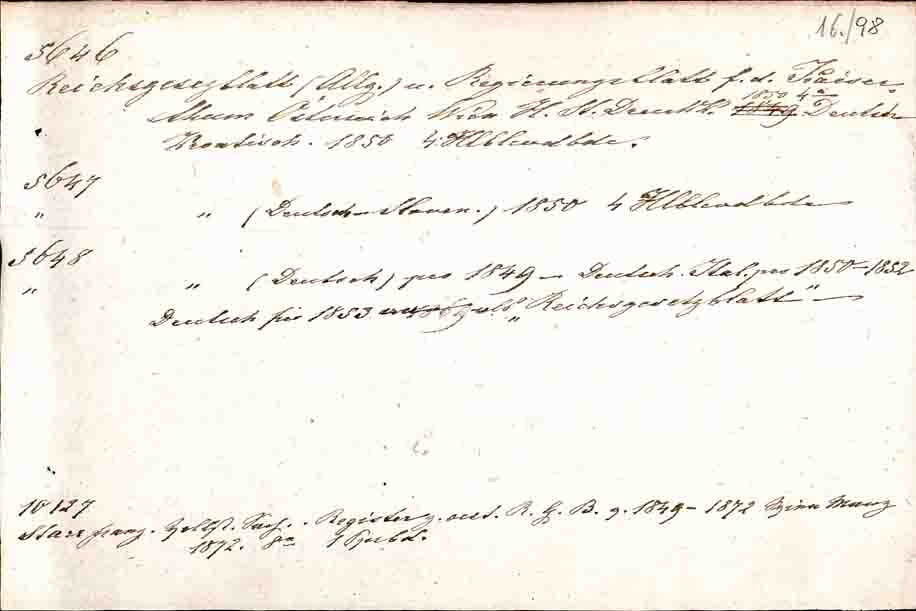 16./98
5646
Reichsgesetzblatt (Allg.) u. Regierungsblatt f. d. Kaiser-
1850 4°
thum Österreich Wien H. St. Druck. 1849 Deutsch
Kroatisch. 1850 4 Hlblwdbde.
5647
" " (Deutsch-Sloven.) 1850 4 Hlblwdbde
5648
" " (Deutsch) pro 1849 – Deutsch. Ital. pro 1850–1852
Deutsch pro 1853 als „Reichsgesetzblatt" –
10127
Starr Franz. Vollst. Sach. Register z. oest. R. G. B. v. 1849–1872 Wien Manz
1872. 8° 1